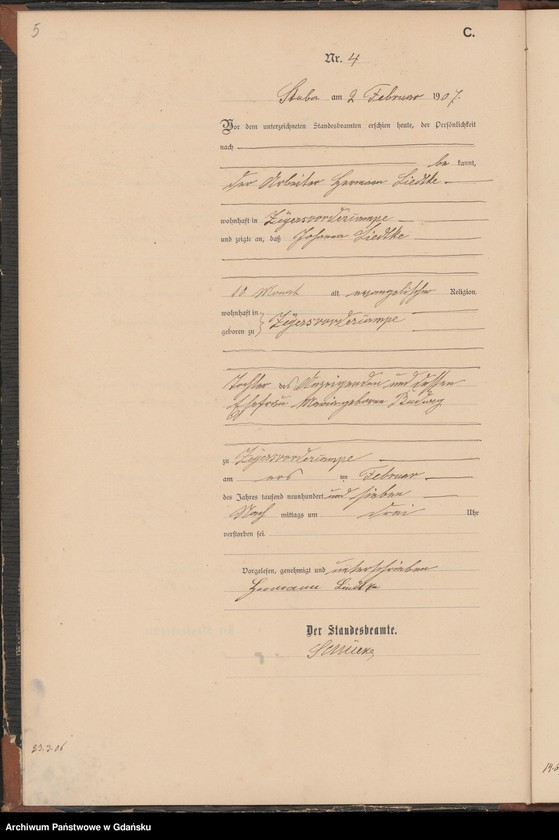 5
C.
Nr. 4
Stuba am 2 Februar 1907.
Vor dem unterzeichneten Standesbeamten erschien heute, der Persönlichkeit
nach
be kannt,
der Arbeiter Hermann Liedtke
wohnhaft in Zeyersvordercampe
und zeigte an, daß Johanna Liedtke
10 Monat alt, evangelischer Religion,
wohnhaft in
geboren zu } Zeyersvordercampe
Tochter des Anzeigenden und dessen
Ehefrau Maria geborene
zu Zeyersvordercampe
am ersten Februar
des Jahres tausend neunhundert und sieben
Nach mittags um drei Uhr
verstorben sei.
Vorgelesen, genehmigt und unterschrieben
Hermann Liedtke
Der Standesbeamte.
23.3.06
Archiwum Państwowe w Gdańsku